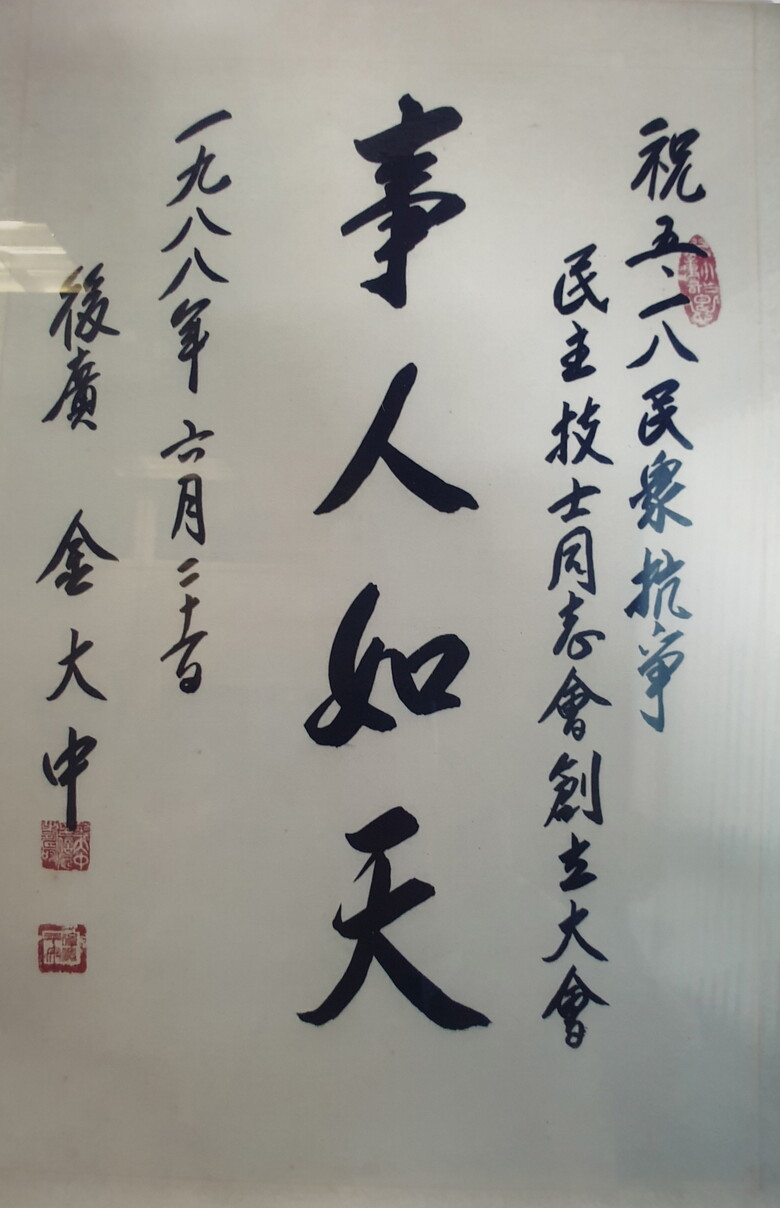 祝 五·一八 民衆抗爭
民主技士同志會創立大會
事人如天
一九八八年 六月 二十
後廣 金大中